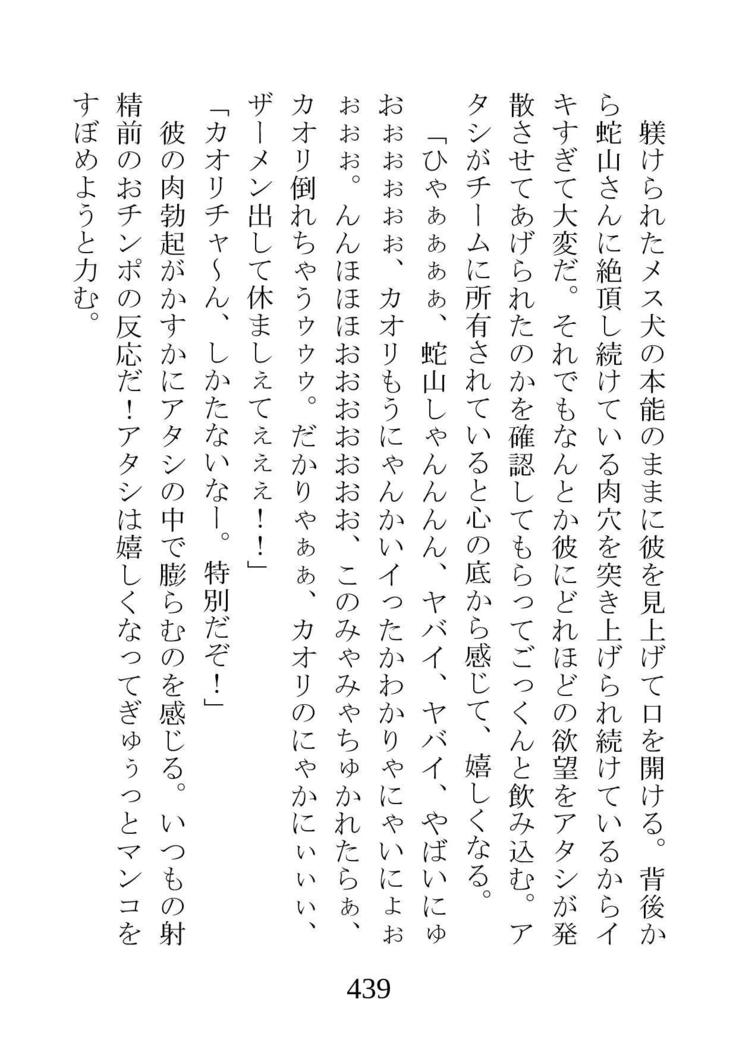 躾けられたメス犬の本能のままに彼を見上げて口を開ける。背後か
ら蛇山さんに絶頂し続けている肉穴を突き上げられ続けているからイ
キすぎて大変だ。それでもなんとか彼にどれほどの欲望をアタシが発
散させてあげられたのかを確認してもらってごっくんと飲み込む。ア
タシがチームに所有されていると心の底から感じて、嬉しくなる。
　「ひゃぁぁぁぁ、蛇山しゃんんんん、ヤバイ、ヤバイ、やばいにゅ
おぉぉぉぉぉ、カオリもうにゃんかいイったかわかりゃにゃいにょぉ
ぉぉぉ。んんほほほおおおおおおお、このみゃみゃちゅかれたらぁ、
カオリ倒れちゃうゥゥゥ。だかりゃぁぁ、カオリのにゃかにぃぃぃ、
ザーメン出して休ましぇてぇぇぇ！！」
「カオリチャ～ん、しかたないなー。特別だぞ！」
　彼の肉勃起がかすかにアタシの中で膨らむのを感じる。いつもの射
精前のおチンポの反応だ！アタシは嬉しくなってぎゅぅっとマンコを
すぼめようと力む。
439